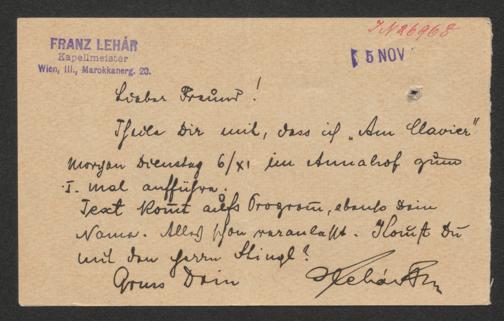 I.N.26968
FRANZ LEHÁR
Kapellmeister
Wien, III., Marokkanerg. 20.
5 NOV
Lieber Freund!
Theile Dir mit, dass ich „Am Clavier"
morgen Dienstag 6/XI im Annahof zum
I. mal aufführe.
Text komt aufs Program, ebenso Dein
Name. Alles schon veranlasst. Komst Du
mit den Herrn Stingl?
Gruss Dein
Lehár